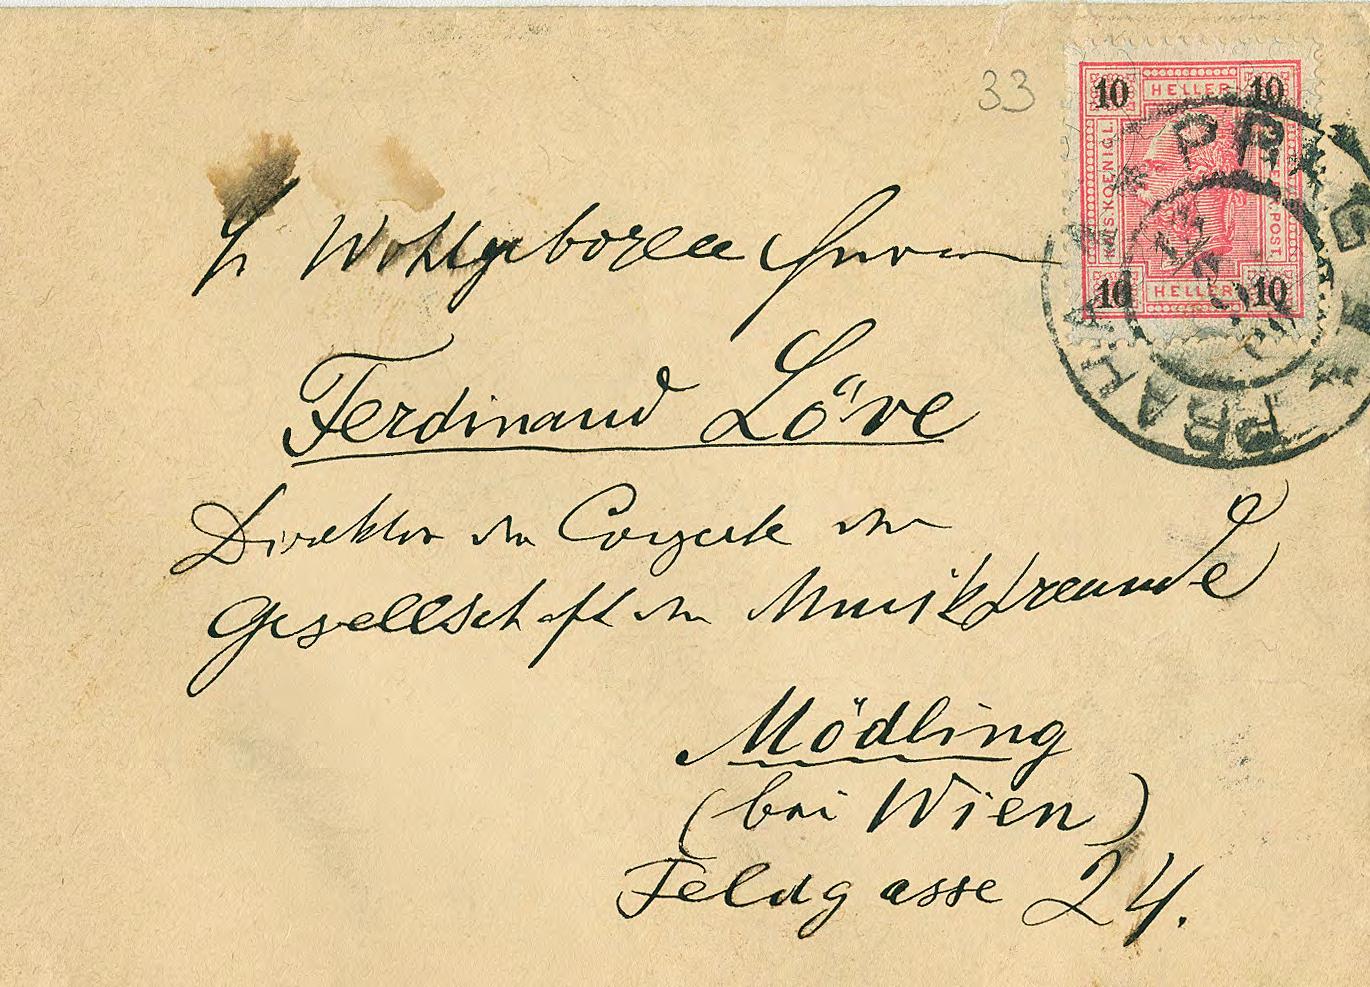 33
10 HELLER 10
KAIS. KOENIGL. POST
10 HELLER 10
PRAHA PRAG
Sr Wohlgeboren Herrn
Ferdinand Löve
Direktor der Conzerte der
Gesellschaft der Musikfreunde
Mödling
(bei Wien)
Feldgasse 24.